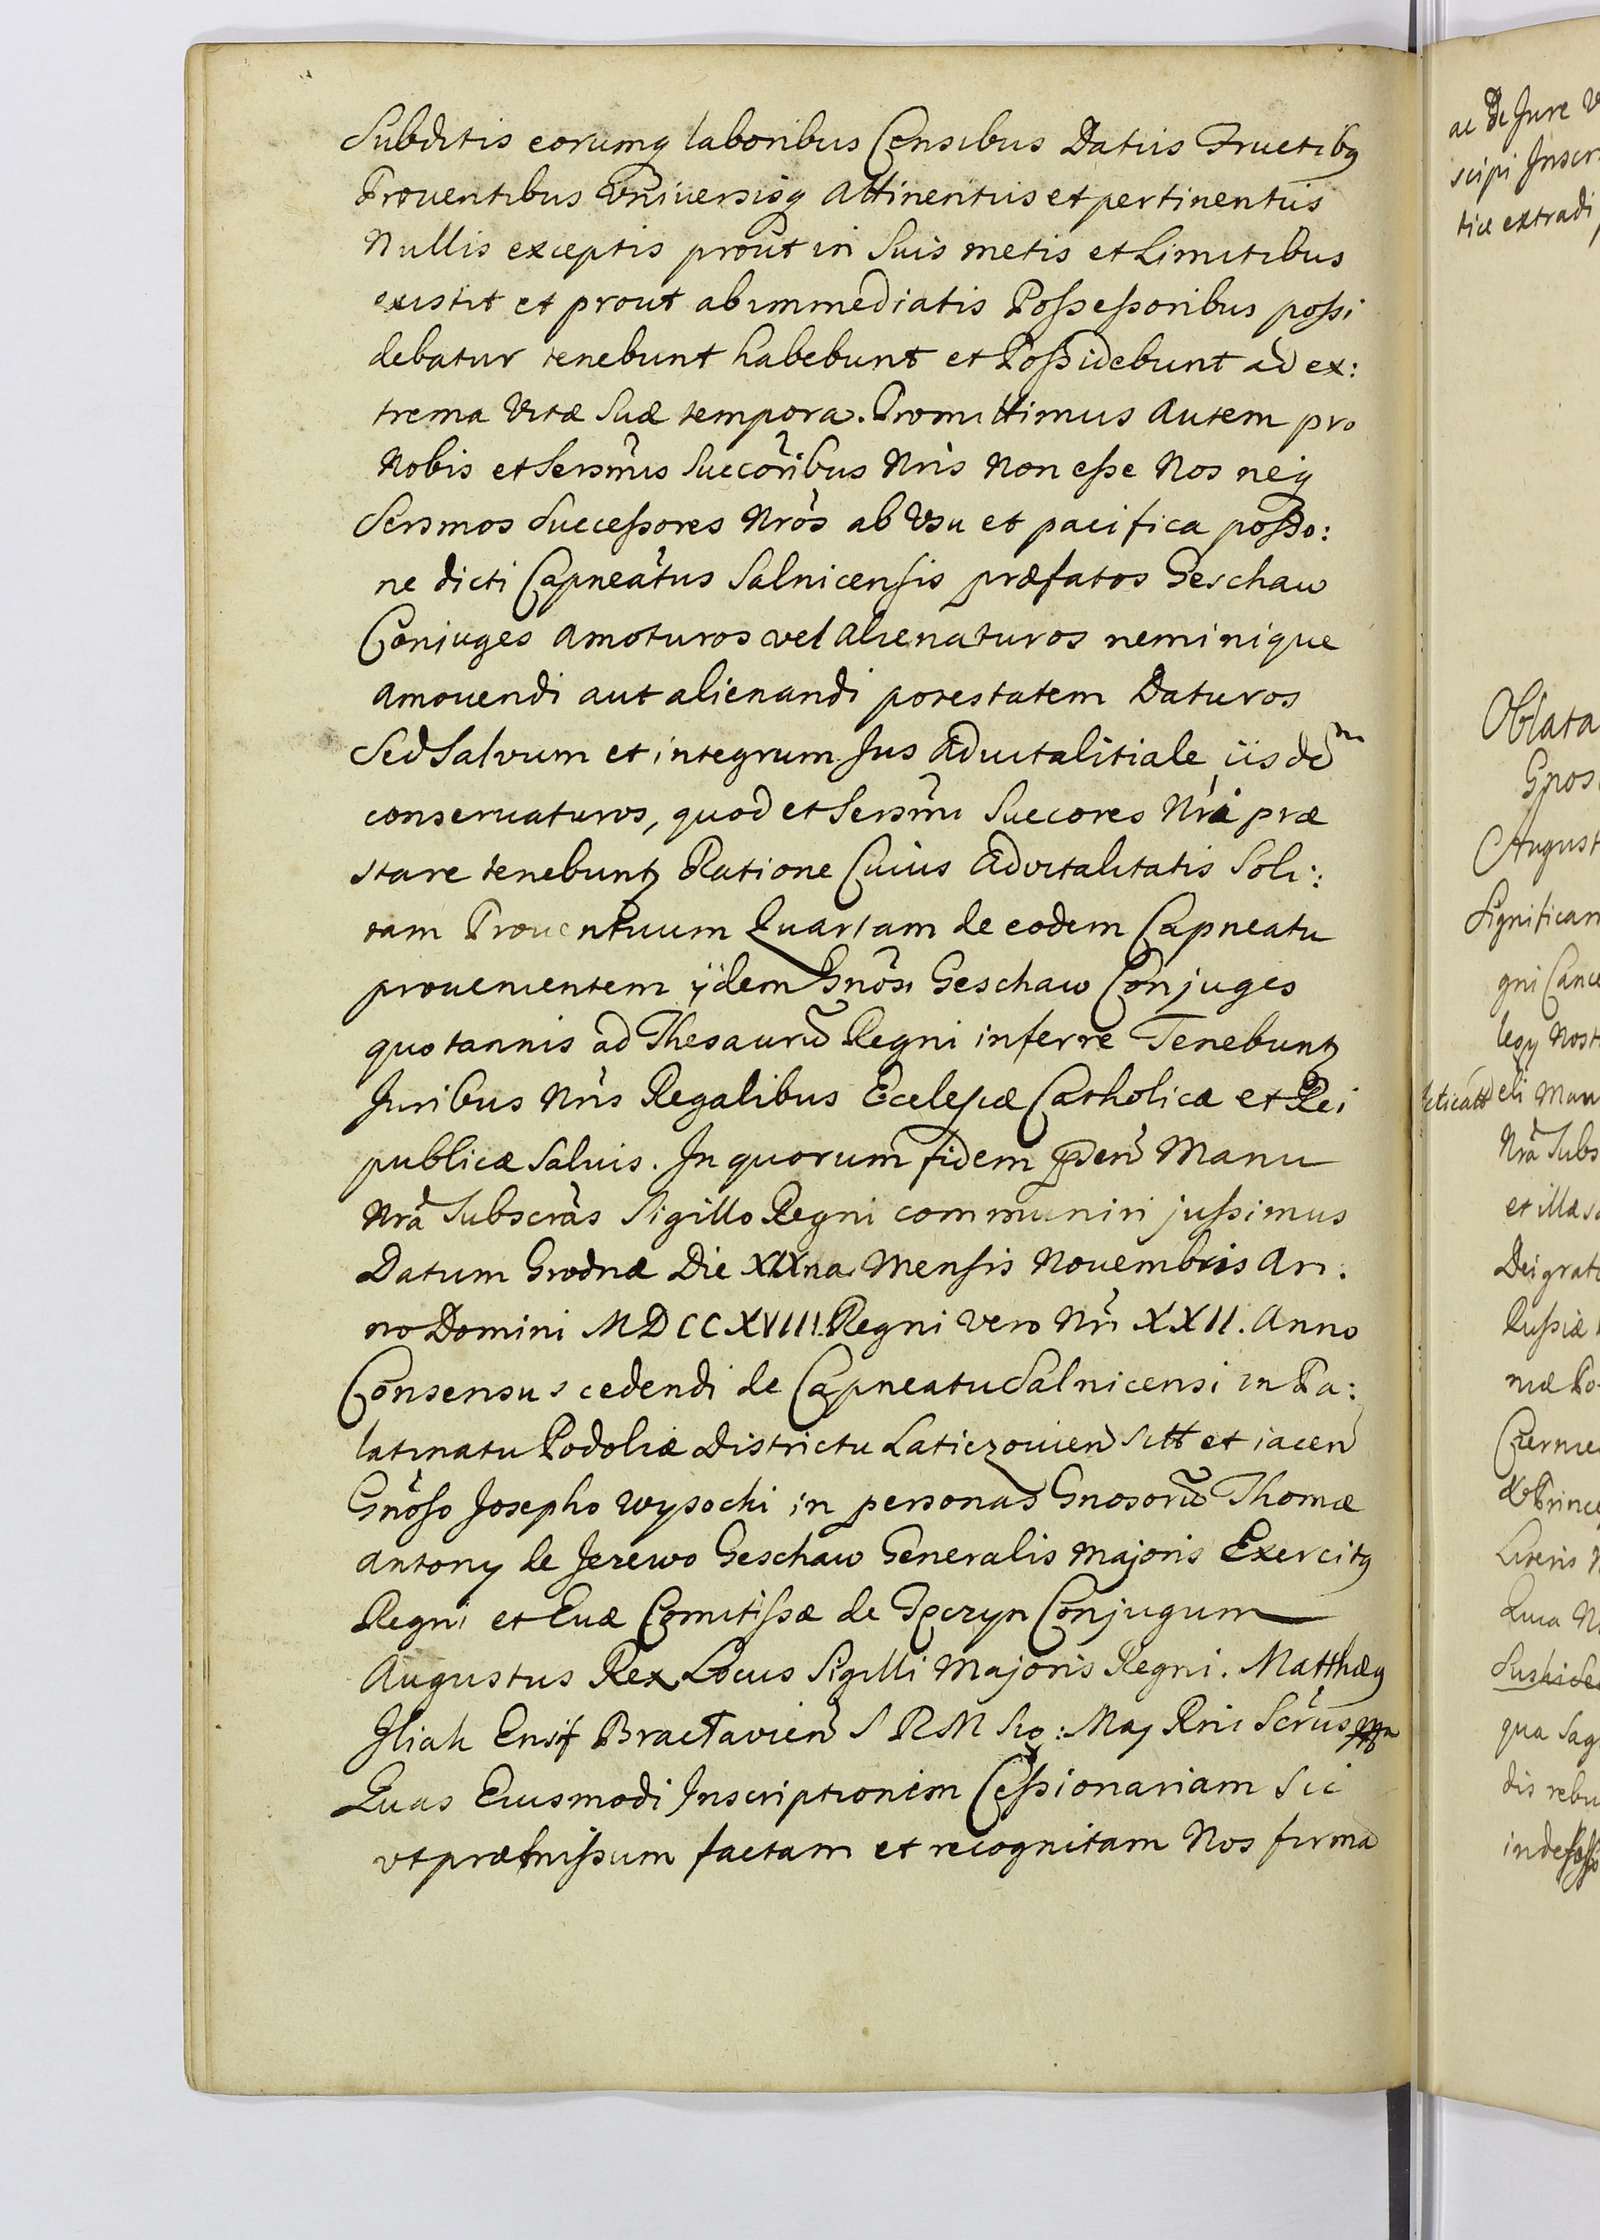 Subditis eorumq laboribus Censibus Datiis Fructibq
Prouentibus Vniuersisq Attinentiis et pertinentiis
Nullis exceptis prout in Suis metis et Limitibus
existit et prout ab immediatis Possessoribus possi
debatur tenebunt habebunt et Possidebunt ad ex:
trema Vitæ Suæ tempora. Promittimus Autem pro
Nobis et Sersmis Succoribus Nris Non esse Nos neq
Sersmos Successores Nros ab Vsu et pacifica possio:
ne dicti Capneatus Salnicensis præfatos Geschaw
Conjuges Amoturos vel Alienaturos neminique
Amouendi aut alienandi potestatem Daturos
Sed Salvum et integrum Jus Aduitalitiale iisdem
conseruaturos, quod et Sersmi Succores Nri præ
stare tenebuntz Ratione Cuius Aduitalitatis Soli:
tam Prouentuum Quartam de eodem Capneatu
prouenientem ijdem Gnosi Geschaw Conjuges
quotannis ad Thesauru Regni inferre Tenebuntz
Juribus Nris Regalibus Eclesiæ Catholicæ et Rei
publicæ Saluis. In quorum fidem pden Manu
Nra Subscras Sigillo Regni communiri jussimus
Datum Grodnæ Die XIXna Mensis Nouembris An:
no Domini MDCCXVIII Regni Vero Nri XXII. Anno
Consensus cedendi de Capneatu Salnicensi in Pa:
latinatu Podoliæ Districtu Laticzouien Sitt et iacen
Gnoso Josepho Wysocki in personas Gnosoru Thomæ
Antony de Jerewo Geschaw Generalis Majoris Exercitq
Regni et Euæ Comitissæ de Conjugum
Augustus Rex Locus Sigilli Majoris Regni. Matthæq
Iliak Ensif Bractavien S R M Sig: Maj Rni Scrius
Quas Eiusmodi Inscriptionem Cessionariam Sic
vt præmissum factam et recognitam Nos firma
ac De Jure
scipi Inscr
tice extradi
Oblata
Gnos
August
Significam
gni Cance
eli Man
Nra Subs
et illæ
Dei grati
Russiæ
Literis
qua
dis rebu